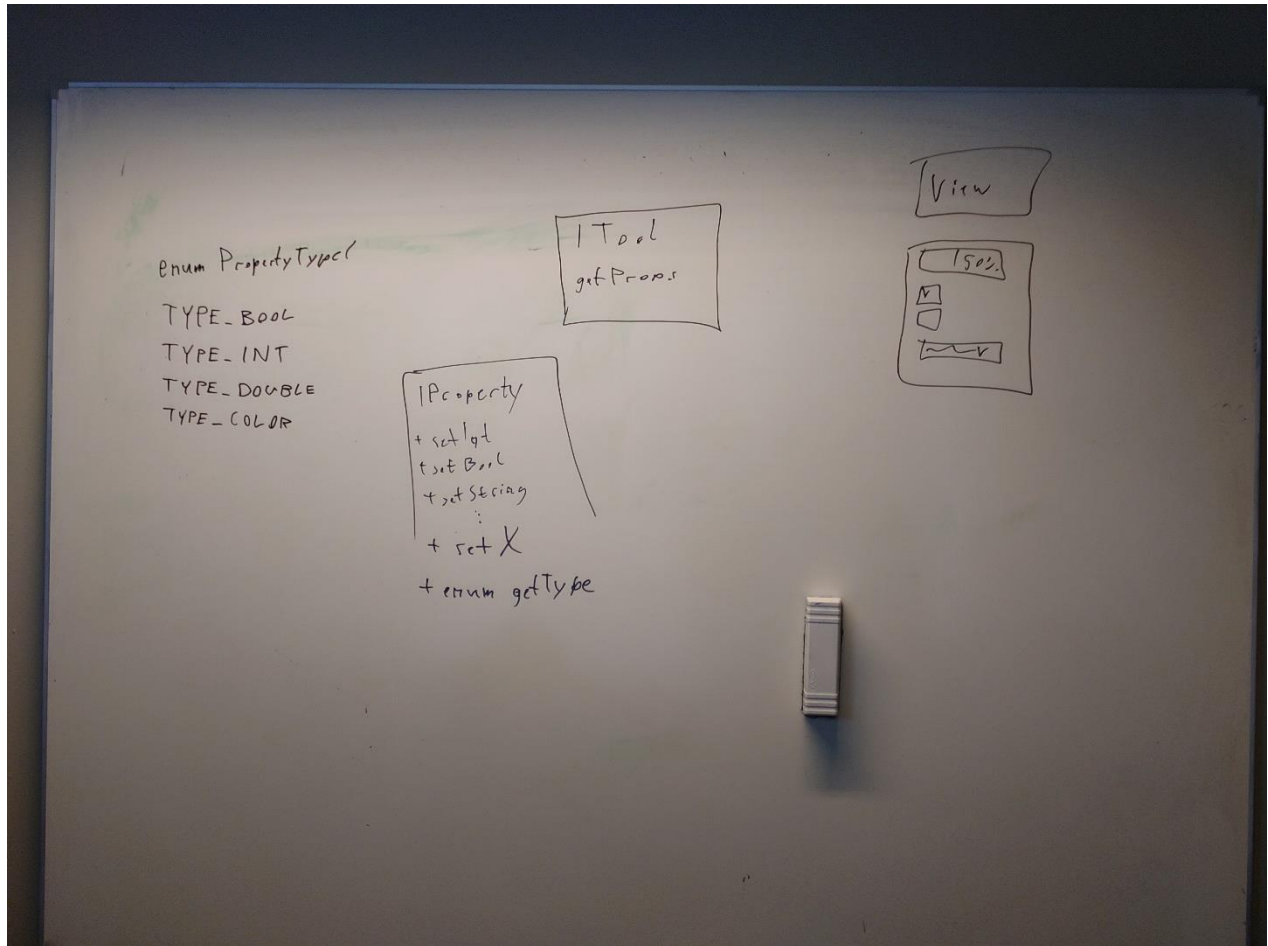 enum PropertyType{
TYPE_BOOL
TYPE_INT
TYPE_DOUBLE
TYPE_COLOR
ITool
getProps
IProperty
+ setInt
+ setBool
+ setString
⋮
+ set X
+ enum getType
View
150%